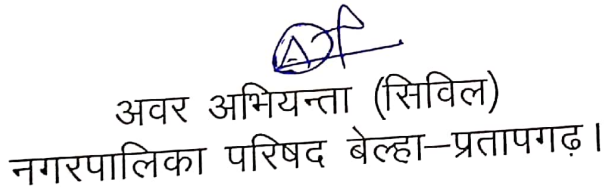 अवर अभियन्ता (सिविल)
नगरपालिका परिषद बेल्हा–प्रतापगढ़।